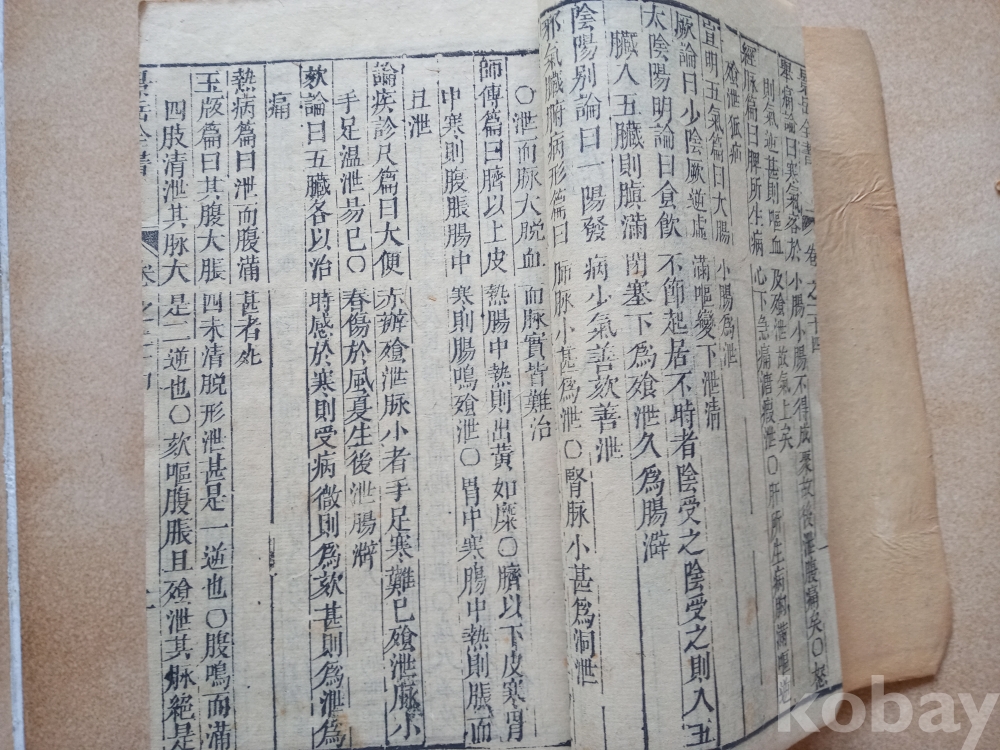 景岳全書 卷之二十四 一
舉痛論曰寒氣客於小腸小腸不得成聚故後泄腹痛矣○怒
則氣逆甚則嘔血及飱泄故氣上矣
經脉篇曰脾所生病心下急痛溏瘕泄○肝所生病胸滿嘔逆
飱泄狐疝
宣明五氣篇曰大腸小腸爲泄
厥論曰少陰厥逆虛滿嘔變下泄清
太陰陽明論曰食飲不節起居不時者陰受之陰受之則入五
臟入五臟則䐜滿閉塞下爲飱泄久爲腸澼
陰陽别論曰一陽發病少氣善欬善泄
邪氣臟腑病形篇曰肺脉小甚爲泄○腎脉小甚爲洞泄
○泄而脉大脱血而脉實皆難治
師傳篇曰臍以上皮熱腸中熱則出黄如糜○臍以下皮寒胃
中寒則腹脹腸中寒則腸鳴飱泄○胃中寒腸中熱則脹而
丑泄
論疾診尺篇曰大便赤瓣飱泄脉小者手足寒難已飱泄脉小
手足温泄易已○春傷於風夏生後泄腸澼
欬論曰五臟各以治時感於寒則受病微則爲欬甚則爲泄爲
痛
熱病篇曰泄而腹滿甚者死
玉版篇曰其腹大脹四末清脱形泄甚是一逆也○腹鳴而滿
四肢清泄其脉大是二逆也○欬嘔腹脹且飱泄其脉絶是
景岳全書 卷之二十四
kobay